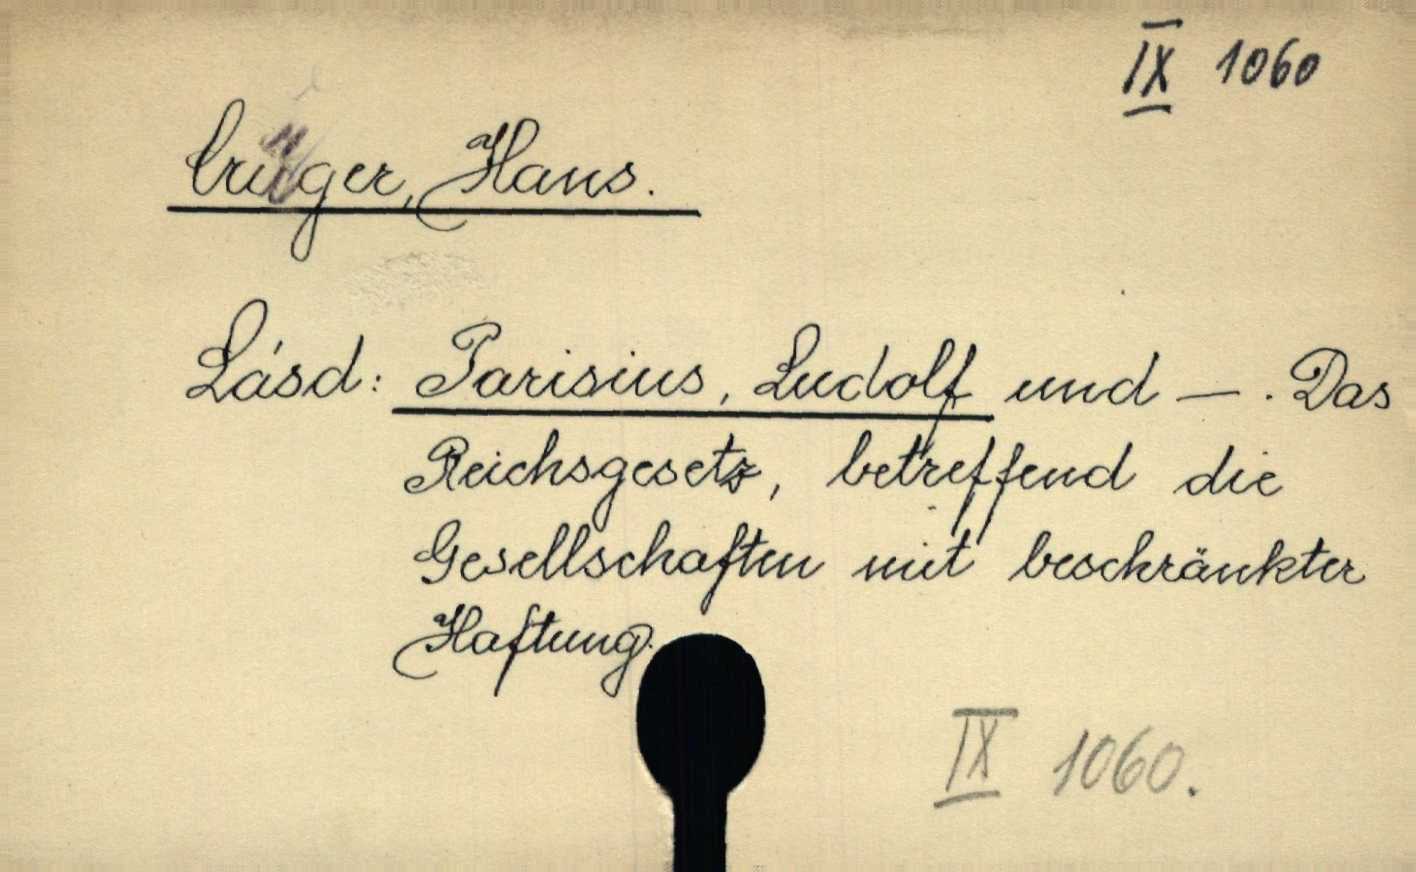 IX 1060
Crüger, Hans.
Lásd: Parisius, Ludolf und —. Das
Reichsgesetz, betreffend die
Gesellschaften mit beschränkter
Haftung.
IX 1060.